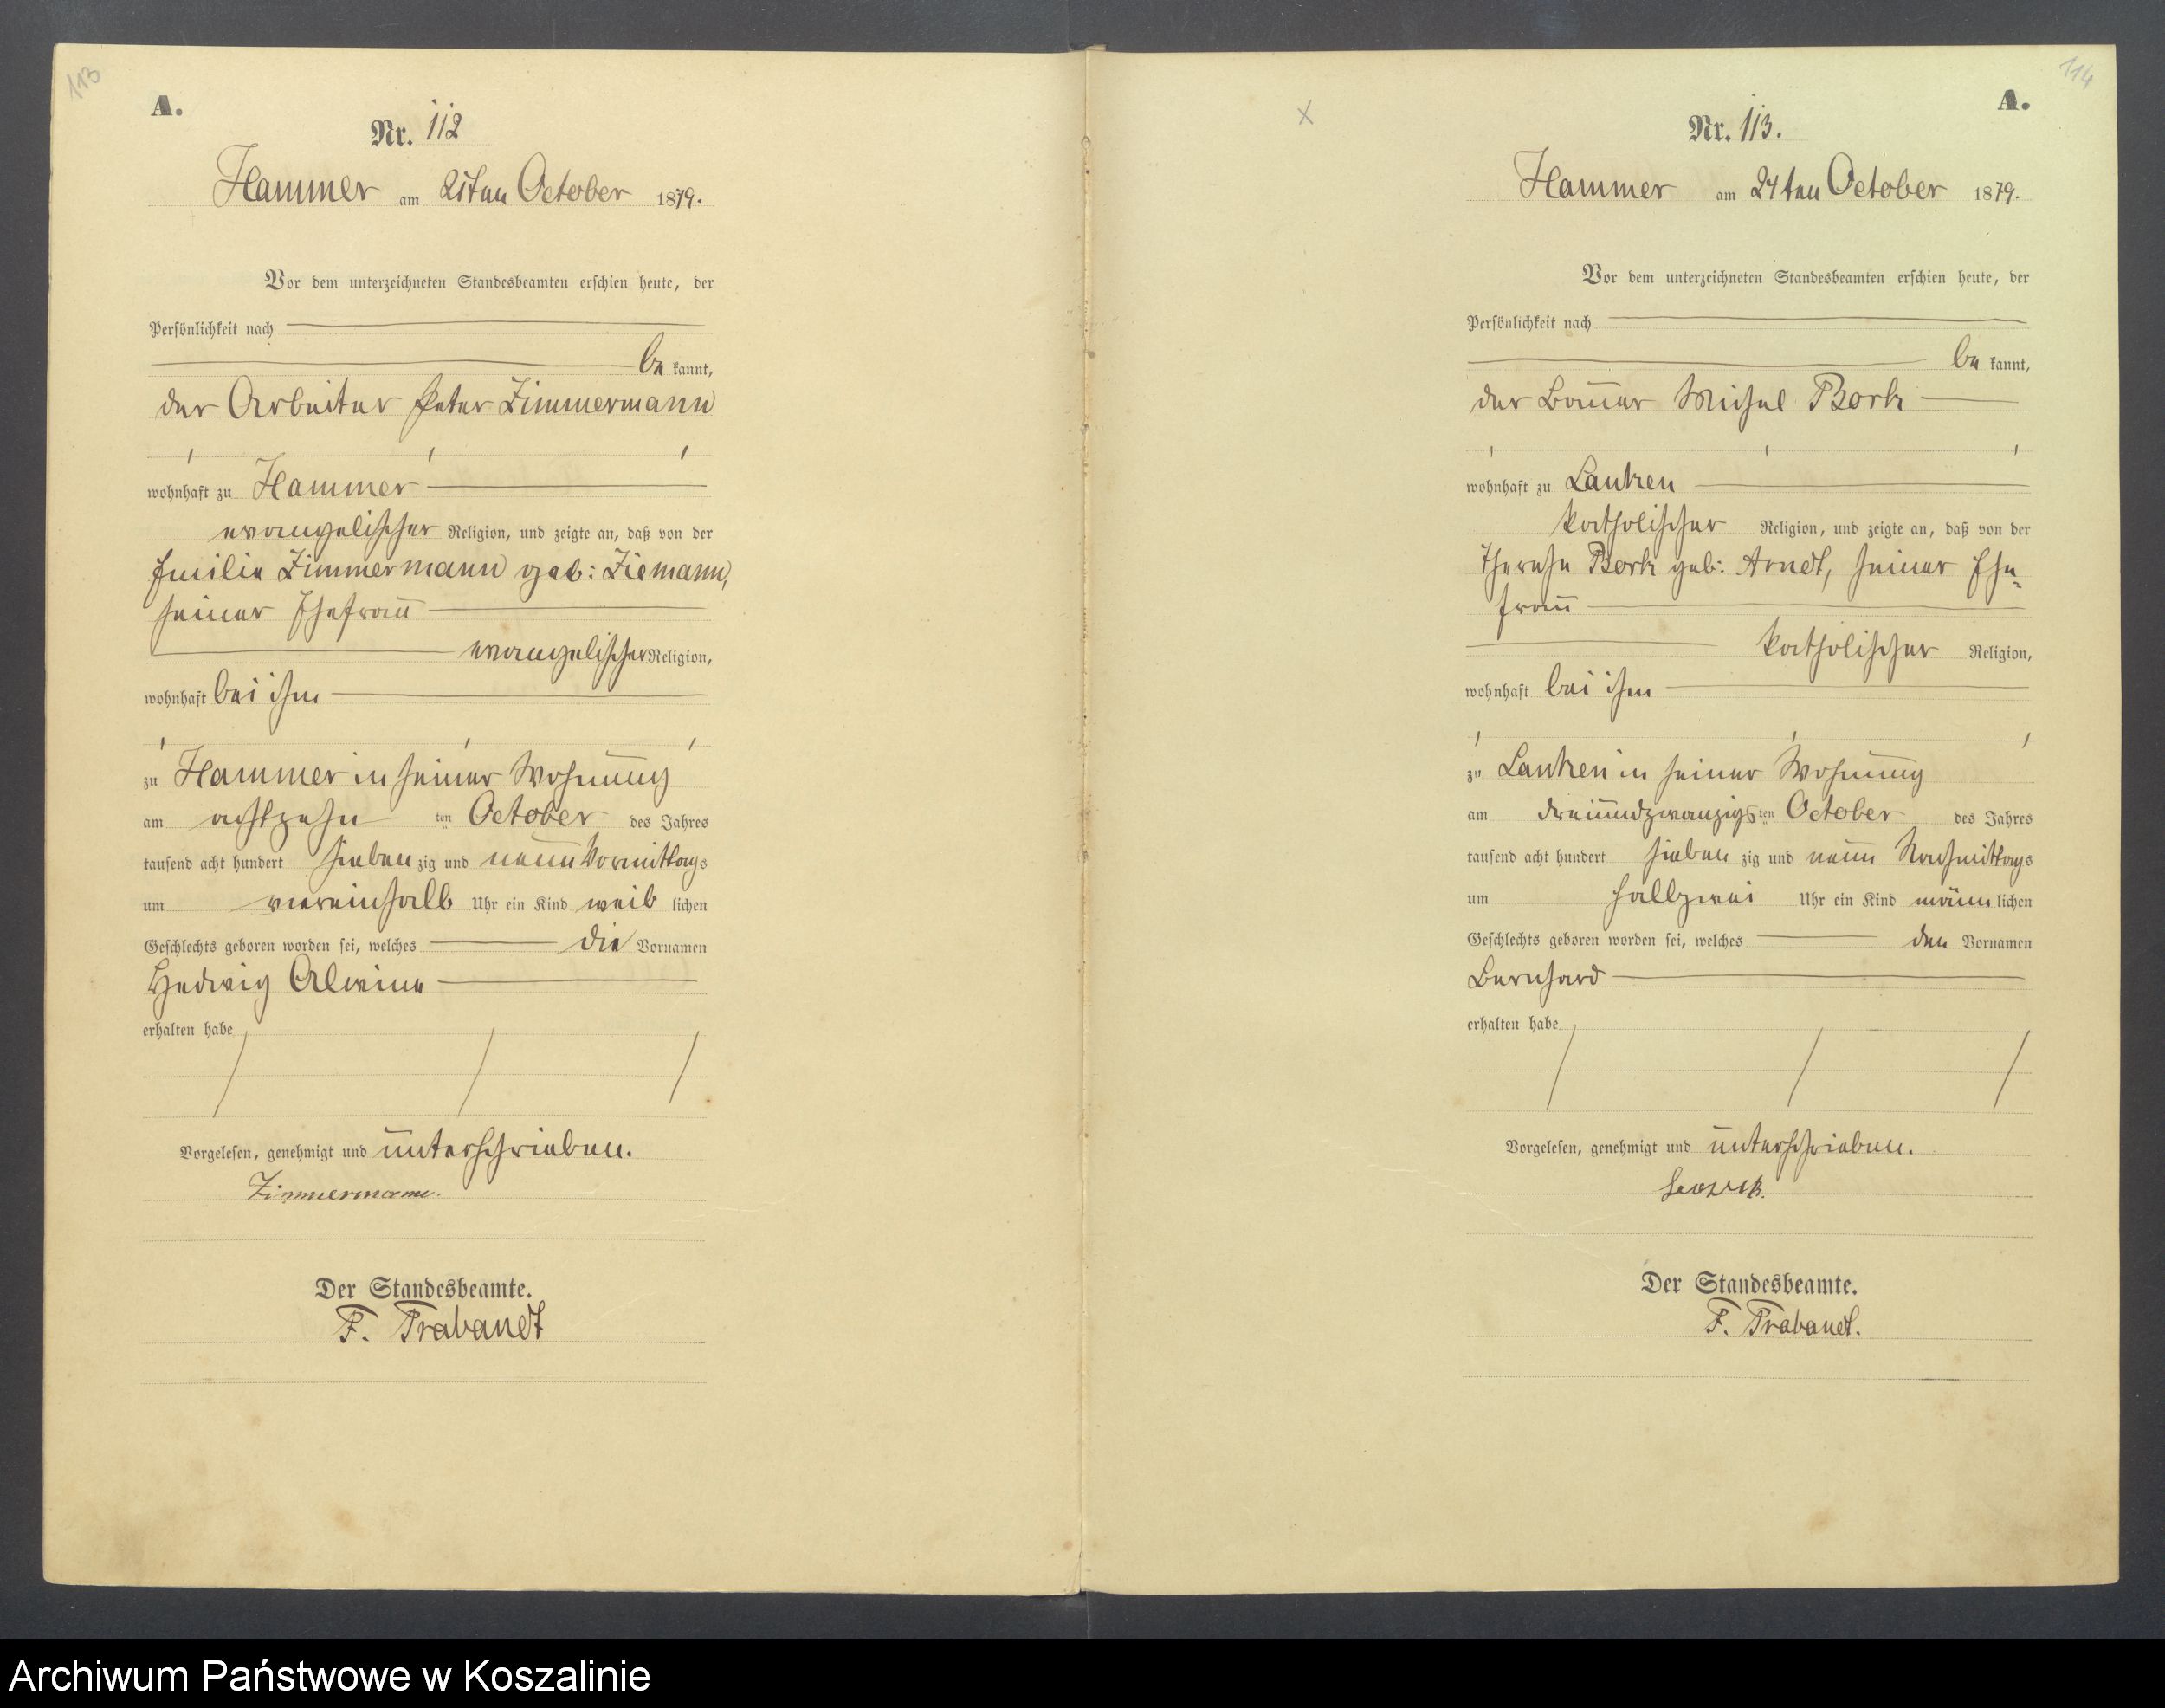 113
A.
Nr. 112
Hammer am 21ten October 1879.
Vor dem unterzeichneten Standesbeamten erschien heute, der
Persönlichkeit nach
be kannt,
der Arbeiter Peter Zimmermann
wohnhaft zu Hammer
evangelischer Religion, und zeigte an, daß von der
Emilie Zimmermann geb: Ziemann,
seiner Ehefrau
evangelischer Religion,
wohnhaft bei ihm
zu Hammer in seiner Wohnung
am achtzehn ten October des Jahres
tausend acht hundert sieben zig und neun Vormittags
um einhalb Uhr ein Kind weib lichen
Geschlechts geboren worden sei, welches die Vornamen
Hedwig Alwine
erhalten habe
Vorgelesen, genehmigt und unterschrieben.
Zimmermann.
Der Standesbeamte.
F. Trabandt
114
A.
Nr. 113.
Hammer am 24ten October 1879.
Vor dem unterzeichneten Standesbeamten erschien heute, der
Persönlichkeit nach
be kannt,
der Bauer Michel Bork
wohnhaft zu Lanken
katholischer Religion, und zeigte an, daß von der
Therese Bork geb: Arndt, seiner Ehe-
frau
katholischer Religion,
wohnhaft bei ihm
zu Lanken in seiner Wohnung
am dreiundzwanzigs ten October des Jahres
tausend acht hundert sieben zig und neun Nachmittags
um halbzwei Uhr ein Kind männ lichen
Geschlechts geboren worden sei, welches den Vornamen
Bernhard
erhalten habe
Vorgelesen, genehmigt und unterschrieben.
Der Standesbeamte.
F. Trabandt.
Archiwum Państwowe w Koszalinie